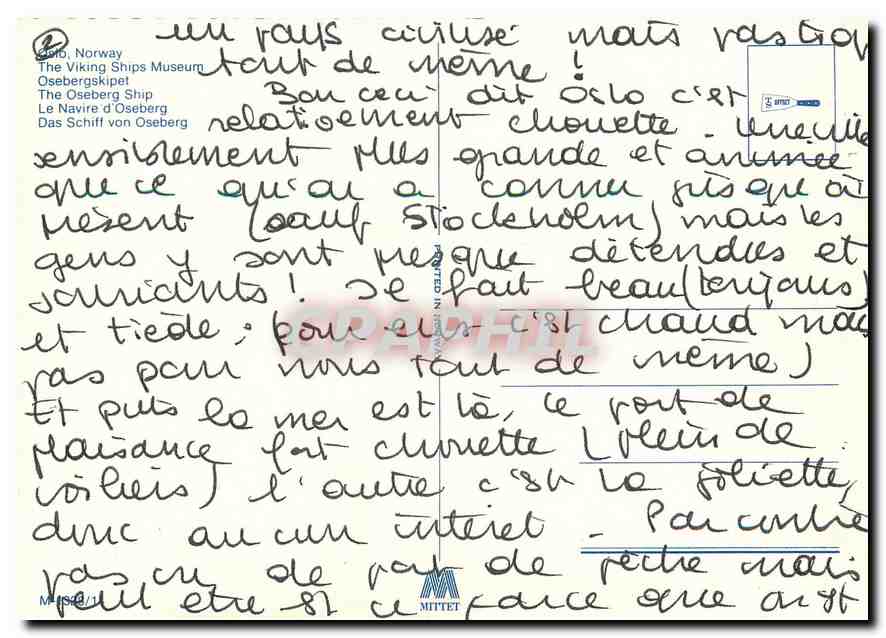 2
un pays civilisé mais pas trop
Oslo, Norway
The Viking Ships Museum
tout de même !
Osebergskipet
The Oseberg Ship
Bon ceci dit Oslo c'est
Le Navire d'Oseberg
Das Schiff von Oseberg
relativement chouette - une ville
sensiblement plus grande et animée
que ce qu'on a connu jusqu'à
présent (sauf Stockholm) mais les
gens y sont presque détendus et
souriants ! Il fait beau (toujours)
et tiède : (pour eux c'est chaud mais
pas pour nous tout de même)
Et puis la mer est là, le port de
plaisance fort chouette (plein de
voiliers) l'autre c'est la joliette,
donc aucun intéret - Par contre
pas vu de port de pêche mais
peut être est ce parce que c'est
PRINTED IN NORWAY
CPAPHIL
M-
MITTET